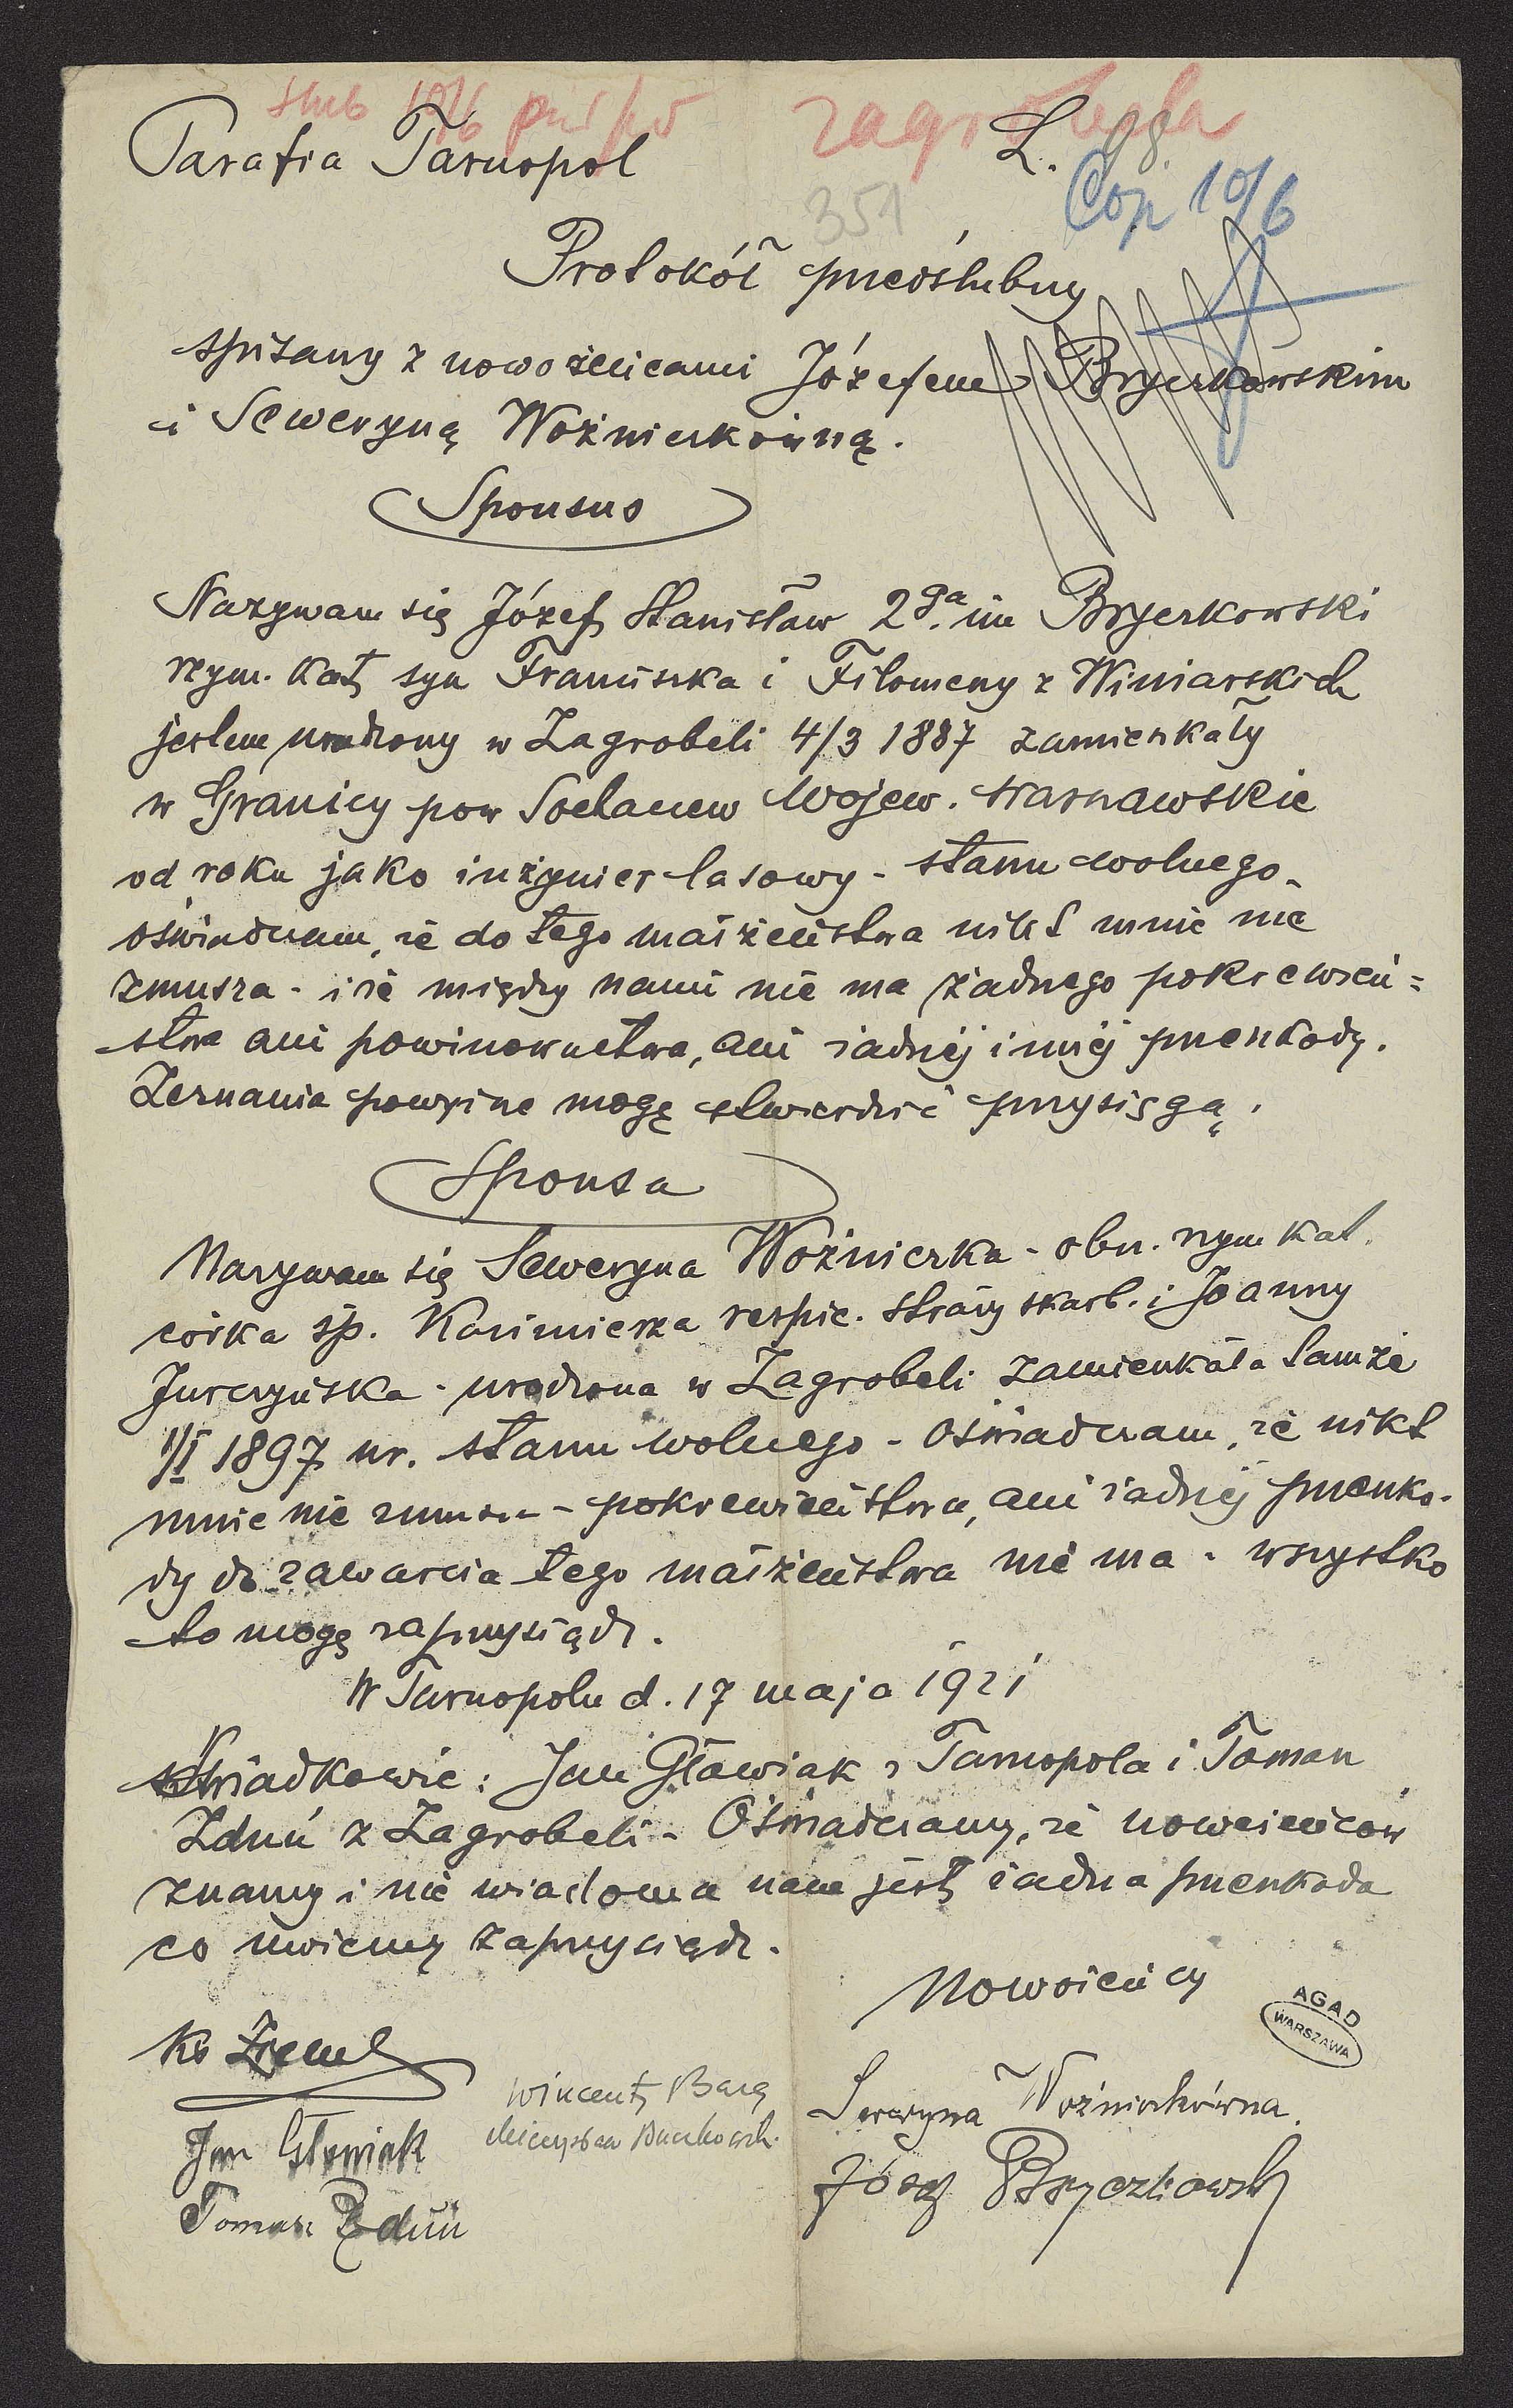 ślub 10/6 zagrobela
Parafia Tarnopol L. 98.
351 Cop 10/6
Protokół przedślubny
spisany z nowożeńcami Józefem Bryczkowskim
i Seweryną Woźniczkówną.
Sponsus
Nazywam się Józef Stanisław 2ga im Bryczkowski
rzym. kat. syn Franciszka i Filomeny z Winiarskich
jestem urodzony w Zagrobeli 4/3 1887 zamieszkały
w Granicy pow Sochaczew Wojew. warszawskie
od roku jako inżynier lasowy - stanu wolnego -
oświadczam, że do tego małżeństwa nikt mnie nie
zmusza - i że między nami nie ma żadnego pokrewień=
stwa ani powinowactwa, ani żadnej innej przeszkody.
Zeznania powyższe mogę stwierdzić przysięgą.
Sponsa
Nazywam się Seweryna Woźniczka - obrz. rzym kat.
córka śp. Kazimierza respic. straży skarb. i Joanny
Jurczyńska - urodzona w Zagrobeli zamieszkała tamże
1/I 1897 ur. stanu wolnego - oświadczam, że nikt
mnie nie zmusza - pokrewieństwa, ani żadnej przeszko-
dy do zawarcia tego małżeństwa nie ma - wszystko
to mogę zaprzysiądz.
W Tarnopolu d. 17 maja 1921
Świadkowie: Jan Gławiak z Tarnopola i Toman
Zduń z Zagrobeli - Oświadczamy, że nowożeńców
znamy i nie wiadoma nam jest żadna przeszkoda
co możemy zaprzysiądz.
Nowożeńcy
AGAD
WARSZAWA
Ks
Wincenty Barą Seweryna Woźniczkówna.
Jan Gławiak Mieczysław
Józef Bryczkowski
Tomasz Zduń